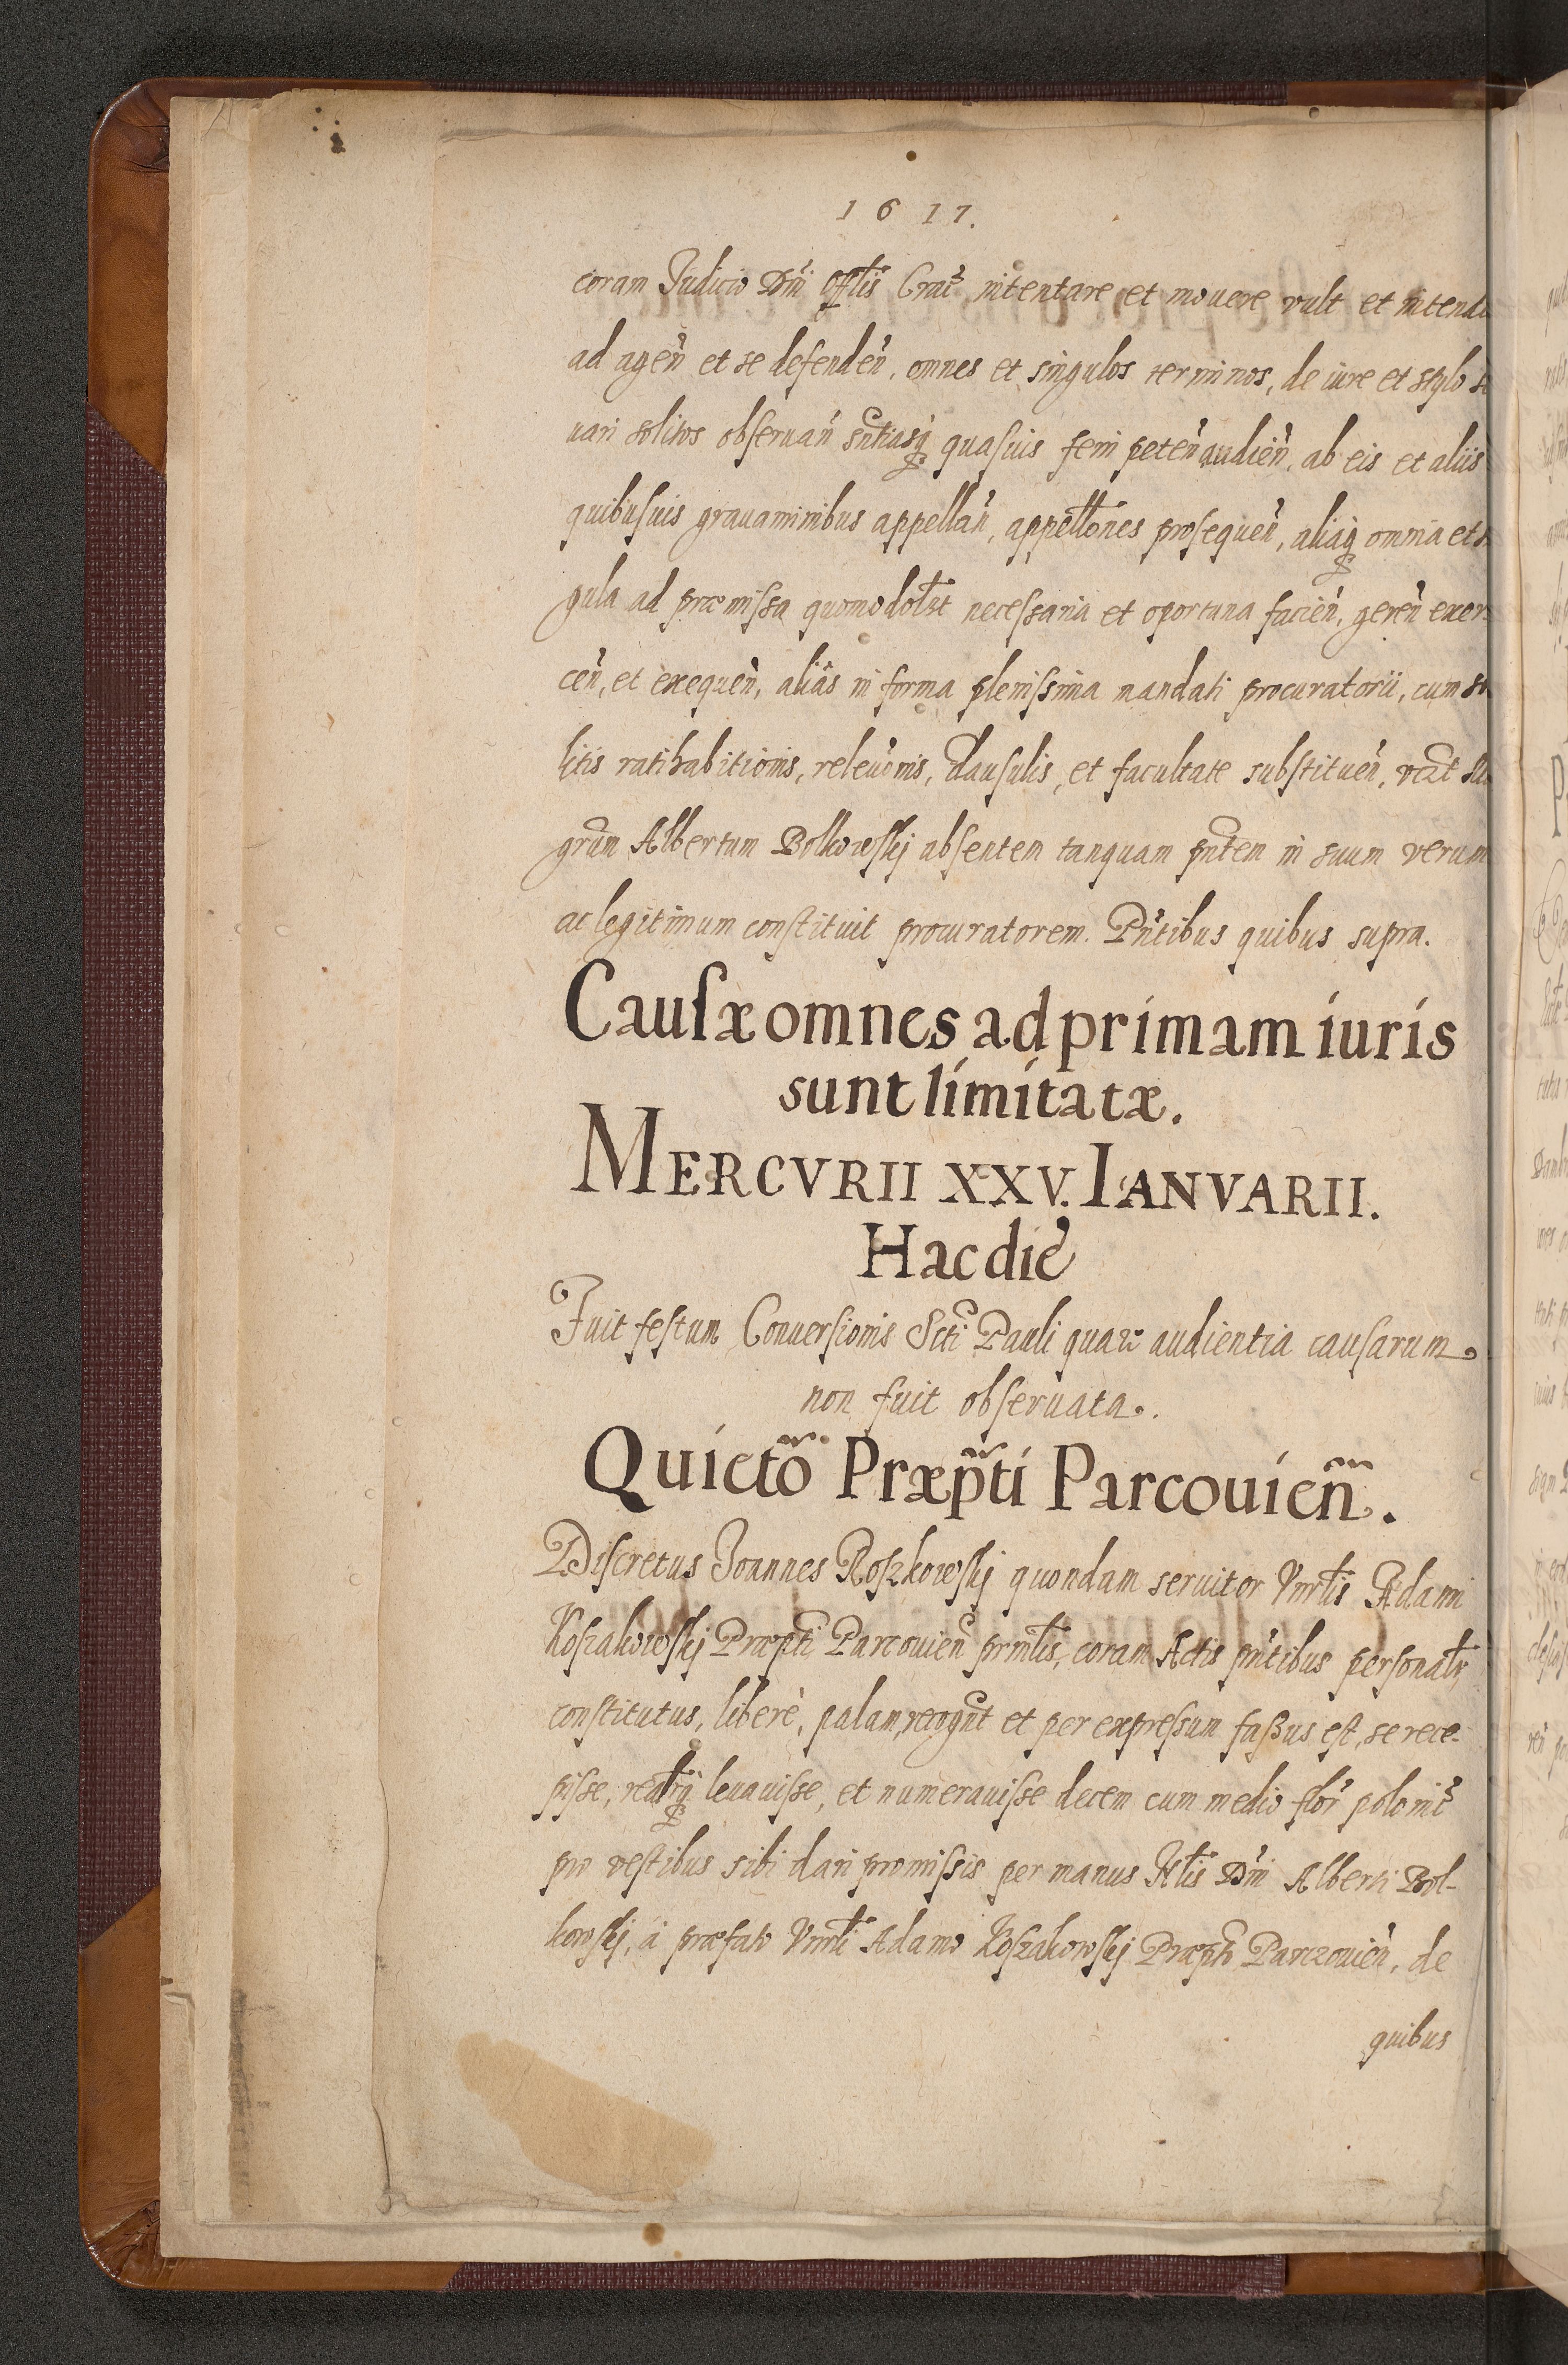 1617.
coram Judicio Dni Offlis Crac intentare et mouere vult et intend
ad agen et se defenden, omnes et singulos terminos, de iure et stylo
uari solitos obseruan sntiasq quasuis ferri peten audien, ab eis et aliis
quibusuis grauaminibus appellan, appellones prosequen, aliaq omnia et
gula ad præmissa quomodolzt necessaria et oportuna facien, geren exer-
cen, et exequen, aliâs in forma plenissima mandati procuratorii, cum so
litis ratihabitionis, releuonis, clausulis, et facultate substituen, vczt
grum Albertum Bolkowskj absentem tanquam pntem in suum verum
ac legitimum constituit procuratorem. Pntibus quibus supra.
Causæ omnes ad primam iuris
sunt limitatæ.
MERCVRII XXV. IANVARII.
Hac die
Fuit festum Conuersionis Scti Pauli quare audientia causarum
non fuit obseruata.
Quictõ Præp̃ti Parcouieñ.
Discretus Joannes Roszkowskj quondam seruitor Vnrlis Adami
Koszakowskj Præpti Parcouien prmlis, coram Actis pntibus personalr
constitutus, liberè, palam, recognt et per expressum faßus est, se rece-
pisse, realrq leuauisse, et numerauisse decem cum medio flor polonic
pro vestibus sibi dari promissis per manus Dni Alberti Bol-
kowskj, à præfato Vnrli Adamo Koszakowskj Præpto Parczouien, de
quibus